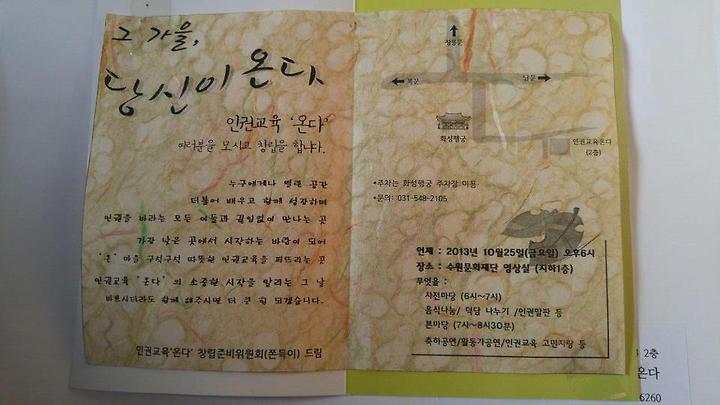 그 가을,
당신이 온다
인권교육 '온다'
여러분을 모시고 창립을 합니다.
누구에게나 열린 공간
더불어 배우고 함께 성장하며
인권을 바라는 모든 이들과 끊임없이 만나는 곳
가장 낮은 곳에서 시작하는 바람이 되어
'온' 마을 구석구석 따뜻한 인권교육을 퍼뜨리는 곳
인권교육 '온다' 의 소중한 시작을 알리는 그 날
바쁘시더라도 함께 해주시면 더 큰 힘 되겠습니다.
인권교육'온다' 창립준비위원회(쫀득이) 드림
장안문
북문
남문
화성행궁
인권교육온다
(2층)
•주차는 화성행궁 주차장 이용
•문의: 031-548-2105
언제 : 2013년 10월25일(금요일) 오후6시
장소 : 수원문화재단 영상실 (지하1층)
무엇을 :
사전마당 (6시~7시)
음식나눔/ 덕담 나누기 /인권말판 등
본마당 (7시~8시30분)
축하공연/활동가공연/인권교육 고민자랑 등
2층
온다
6260